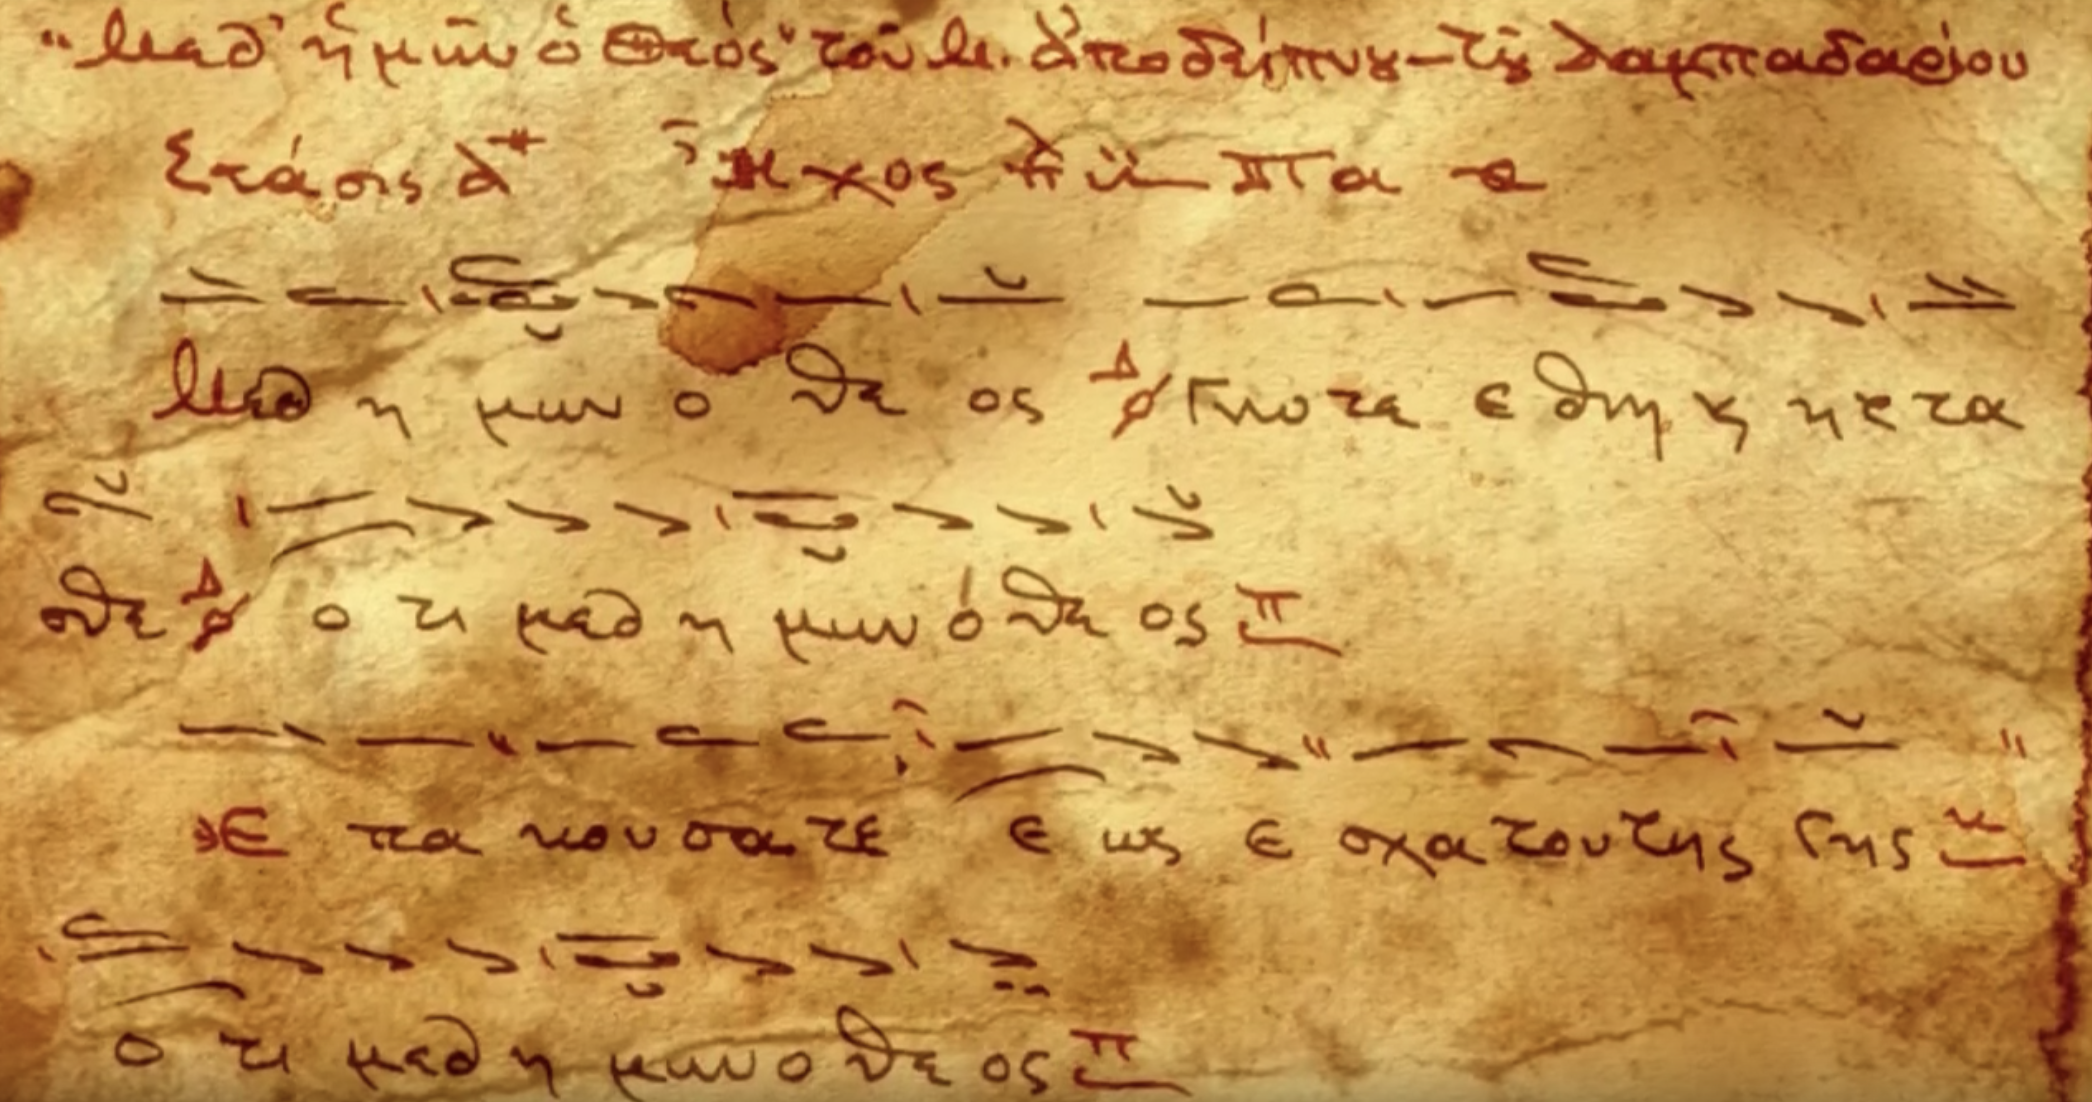 "Μεθ' ἡμῶν ὁ Θεός" τοῦ Μ. Ἀποδείπνου - τοῦ λαμπαδαρίου
Στάσις α Ἦχος πα
Μεθ η μων ο θε ος Δ Γνω τε ε θνη κ ητ τα
σθε Δ ο τι μεθ η μων ὁ θε ος Π
Ε πα κου σα τε ε ως ε σχα του της γης κ
ο τι μεθ η μων ο θε ος Π